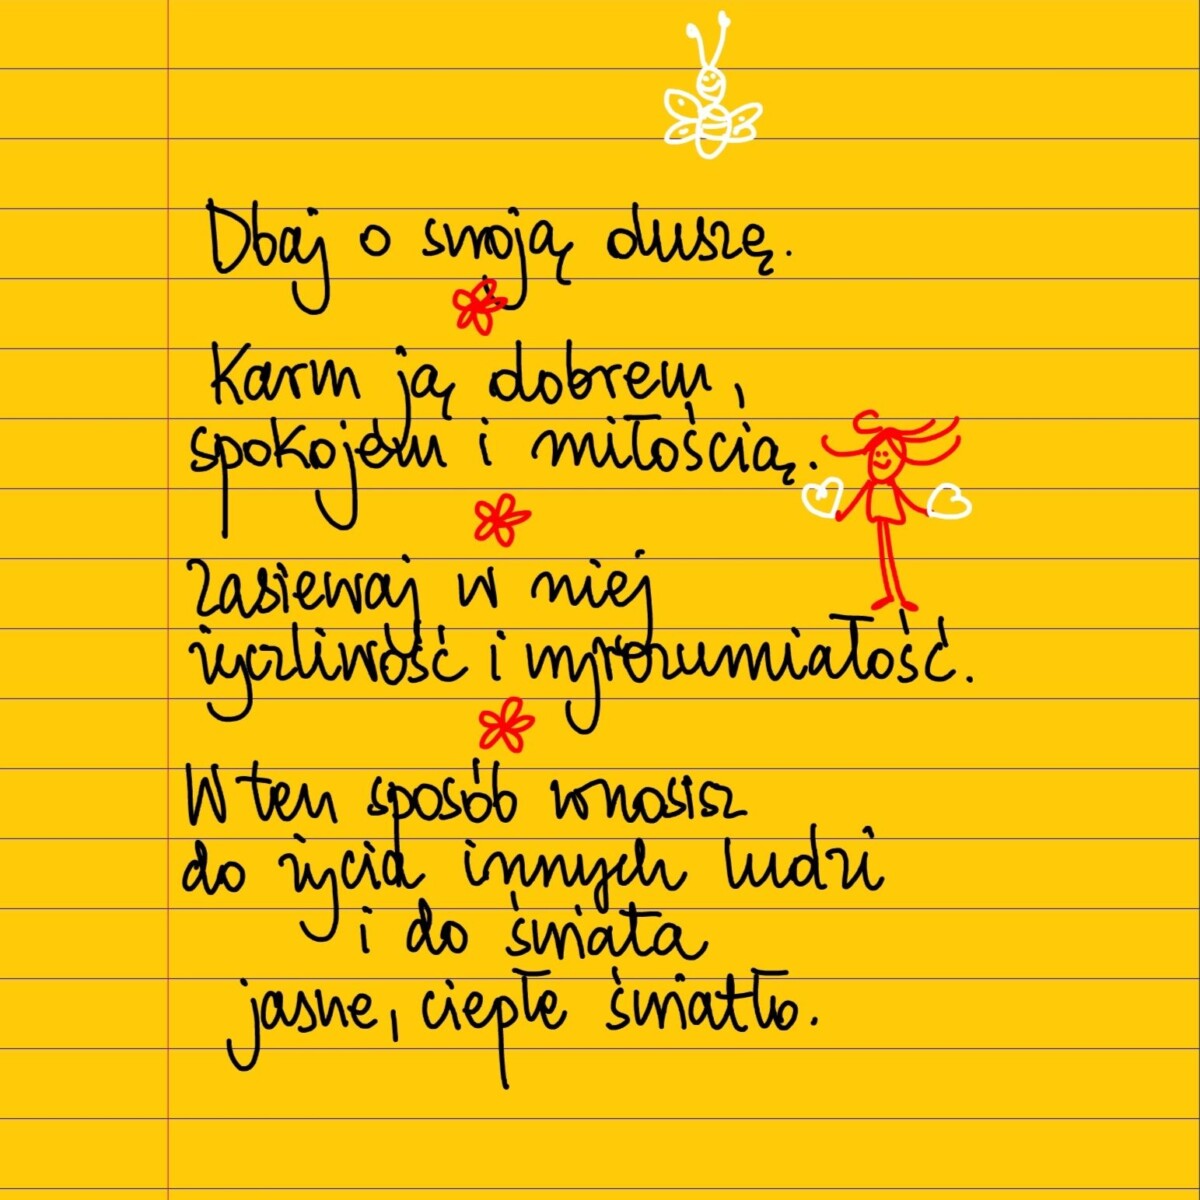 Dbaj o swoją duszę.
Karm ją dobrem,
spokojem i miłością.
Zasiewaj w niej
życzliwość i wyrozumiałość.
W ten sposób wnosisz
do życia innych ludzi
i do świata
jasne, ciepłe światło.